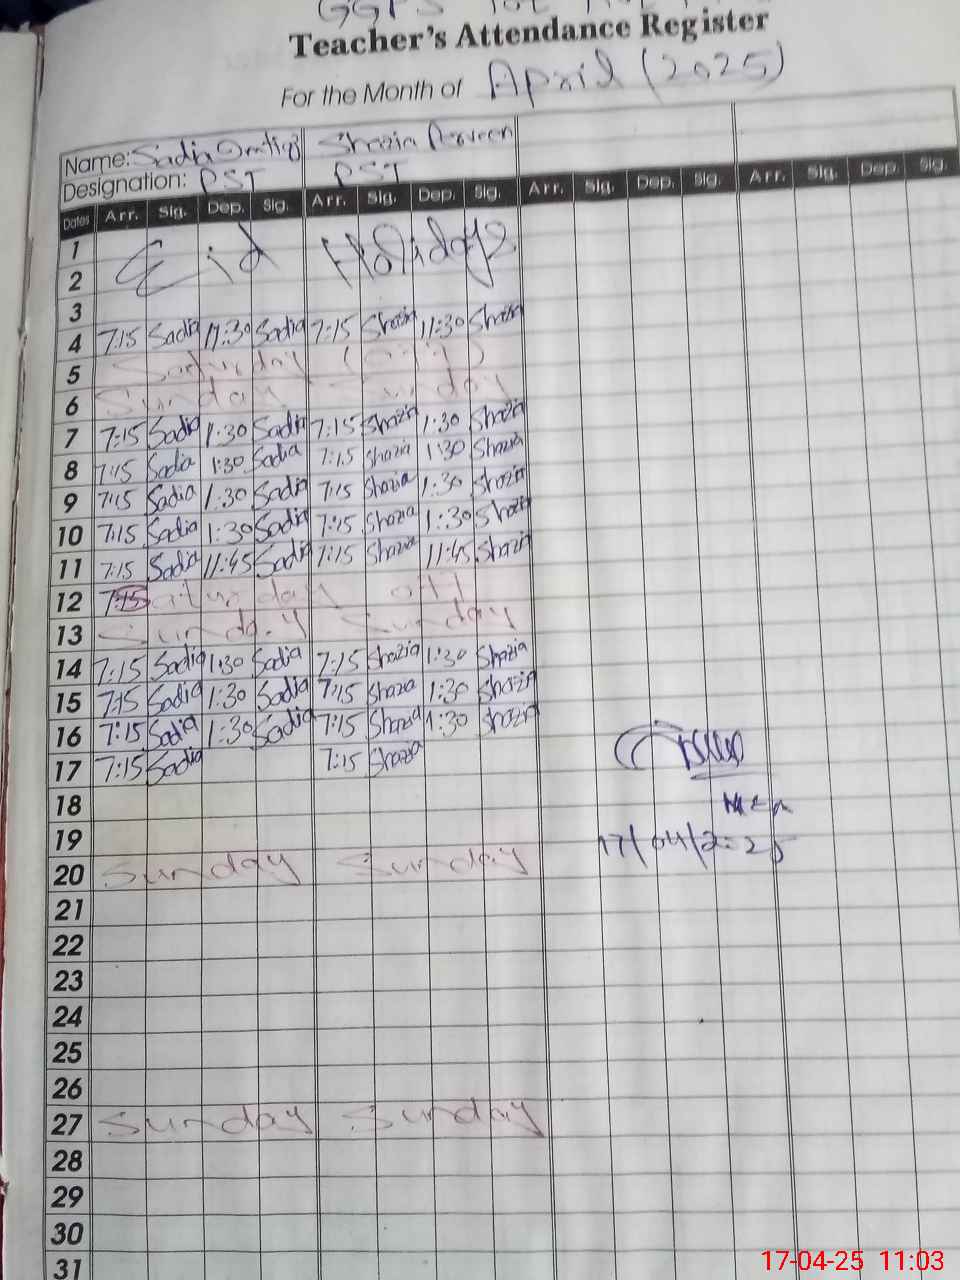 GGPS
Teacher's Attendance Register
For the Month of April (2025)
Name: Sadia Imtiaz Shazia Parveen
Designation: PST PST
Dates Arr. Sig. Dep. Sig. Arr. Sig. Dep. Sig. Arr. Sig. Dep. Sig. Arr. Sig. Dep. Sig.
1 Eid Holidays
2
3
4 7:15 Sadia 11:30 Sadia 7:15 Shazia 11:30 Shazia
5 Saturday (off)
6 Sunday Sunday
7 7:15 Sadia 1:30 Sadia 7:15 Shazia 1:30 Shazia
8 7:15 Sadia 1:30 Sadia 7:15 Shazia 1:30 Shazia
9 7:15 Sadia 1:30 Sadia 7:15 Shazia 1:30 Shazia
10 7:15 Sadia 1:30 Sadia 7:15 Shazia 1:30 Shazia
11 7:15 Sadia 11:45 Sadia 7:15 Shazia 11:45 Shazia
12 7:15 Saturday off
13 Sunday Sunday
14 7:15 Sadia 1:30 Sadia 7:15 Shazia 1:30 Shazia
15 7:15 Sadia 1:30 Sadia 7:15 Shazia 1:30 Shazia
16 7:15 Sadia 1:30 Sadia 7:15 Shazia 1:30 Shazia
17 7:15 Sadia 7:15 Shazia
18
19 17/04/2025
20 Sunday Sunday
21
22
23
24
25
26
27 Sunday Sunday
28
29
30
31
17-04-25 11:03